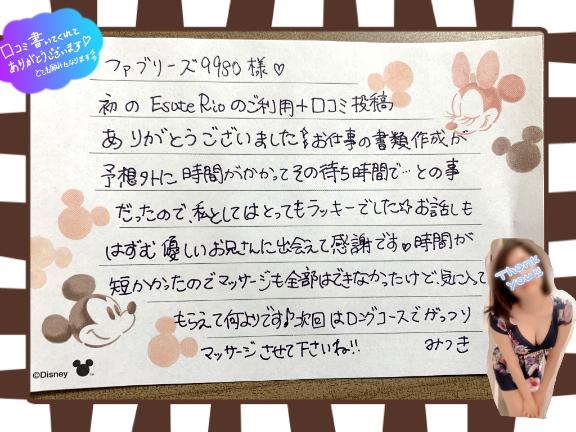 口コミ書いてくれて
ありがとうございます♡
とてもお励みになります
ファブリーズ9980様♡
初のEsute Rioのご利用+口コミ投稿
ありがとうございました お仕事の書類作成が
予想外に時間がかかってその待ち時間で…との事
だったので、私としてはとってもラッキーでした☆お話しも
はずむ優しいお兄さんに出会えて感謝です♡時間が
短かかったのでマッサージも全部はできなかったけど、気に入って
もらえて何よりです♪次回はロングコースでがっつり
マッサージさせて下さいね!! みつき
Thank
you
©Disney